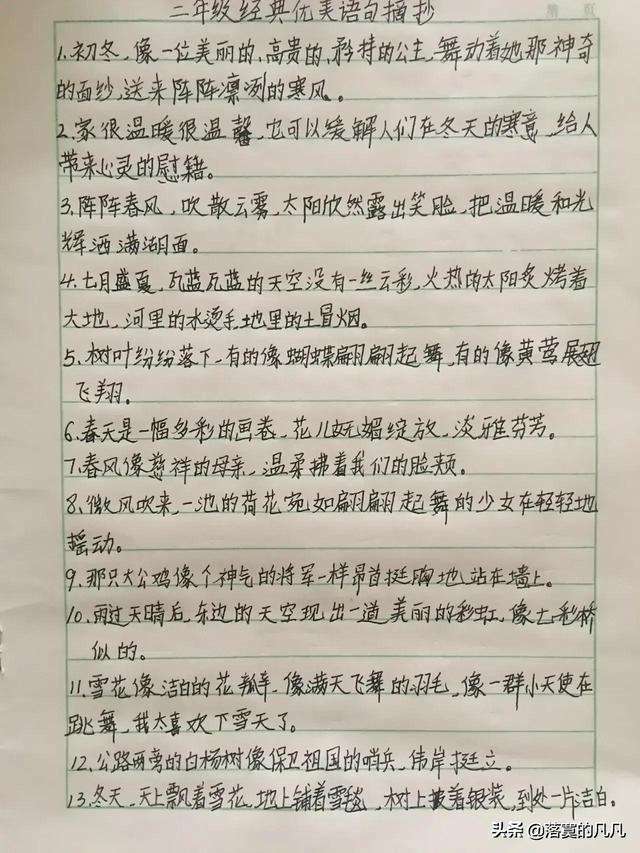 二年级经典优美语句摘抄
第 页
1.初冬,像一位美丽的、高贵的、矜持的公主,舞动着她那神奇
的面纱,送来阵阵凛冽的寒风。
2.家很温暖很温馨,也可以缓解人们在冬天的寒意,给人
带来心灵的慰籍。
3.阵阵春风,吹散云雾,太阳欣然露出笑脸,把温暖和光
辉洒满湖面。
4.七月盛夏,瓦蓝瓦蓝的天空没有一丝云彩,火热的太阳炙烤着
大地,河里的水烫手,地里的土冒烟。
5.树叶纷纷落下,有的像蝴蝶翩翩起舞,有的像黄莺展翅
飞翔。
6.春天是一幅多彩的画卷,花儿妩媚绽放,淡雅芬芳。
7.春风像慈祥的母亲,温柔拂着我们的脸颊。
8.微风吹来,一池的荷花宛如翩翩起舞的少女在轻轻地
摇动。
9.那只大公鸡像个神气的将军一样昂首挺胸地站在墙上。
10.雨过天晴后,东边的天空现出一道美丽的彩虹,像七彩桥
似的。
11.雪花像洁白的花瓣,像满天飞舞的羽毛,像一群小天使在
跳舞,我太喜欢下雪天了。
12.公路两旁的白杨树像保卫祖国的哨兵,伟岸挺立。
13.冬天,天上飘着雪花,地上铺着雪毯,树上披着银装,到处一片洁白。
头条 @落寞的几几